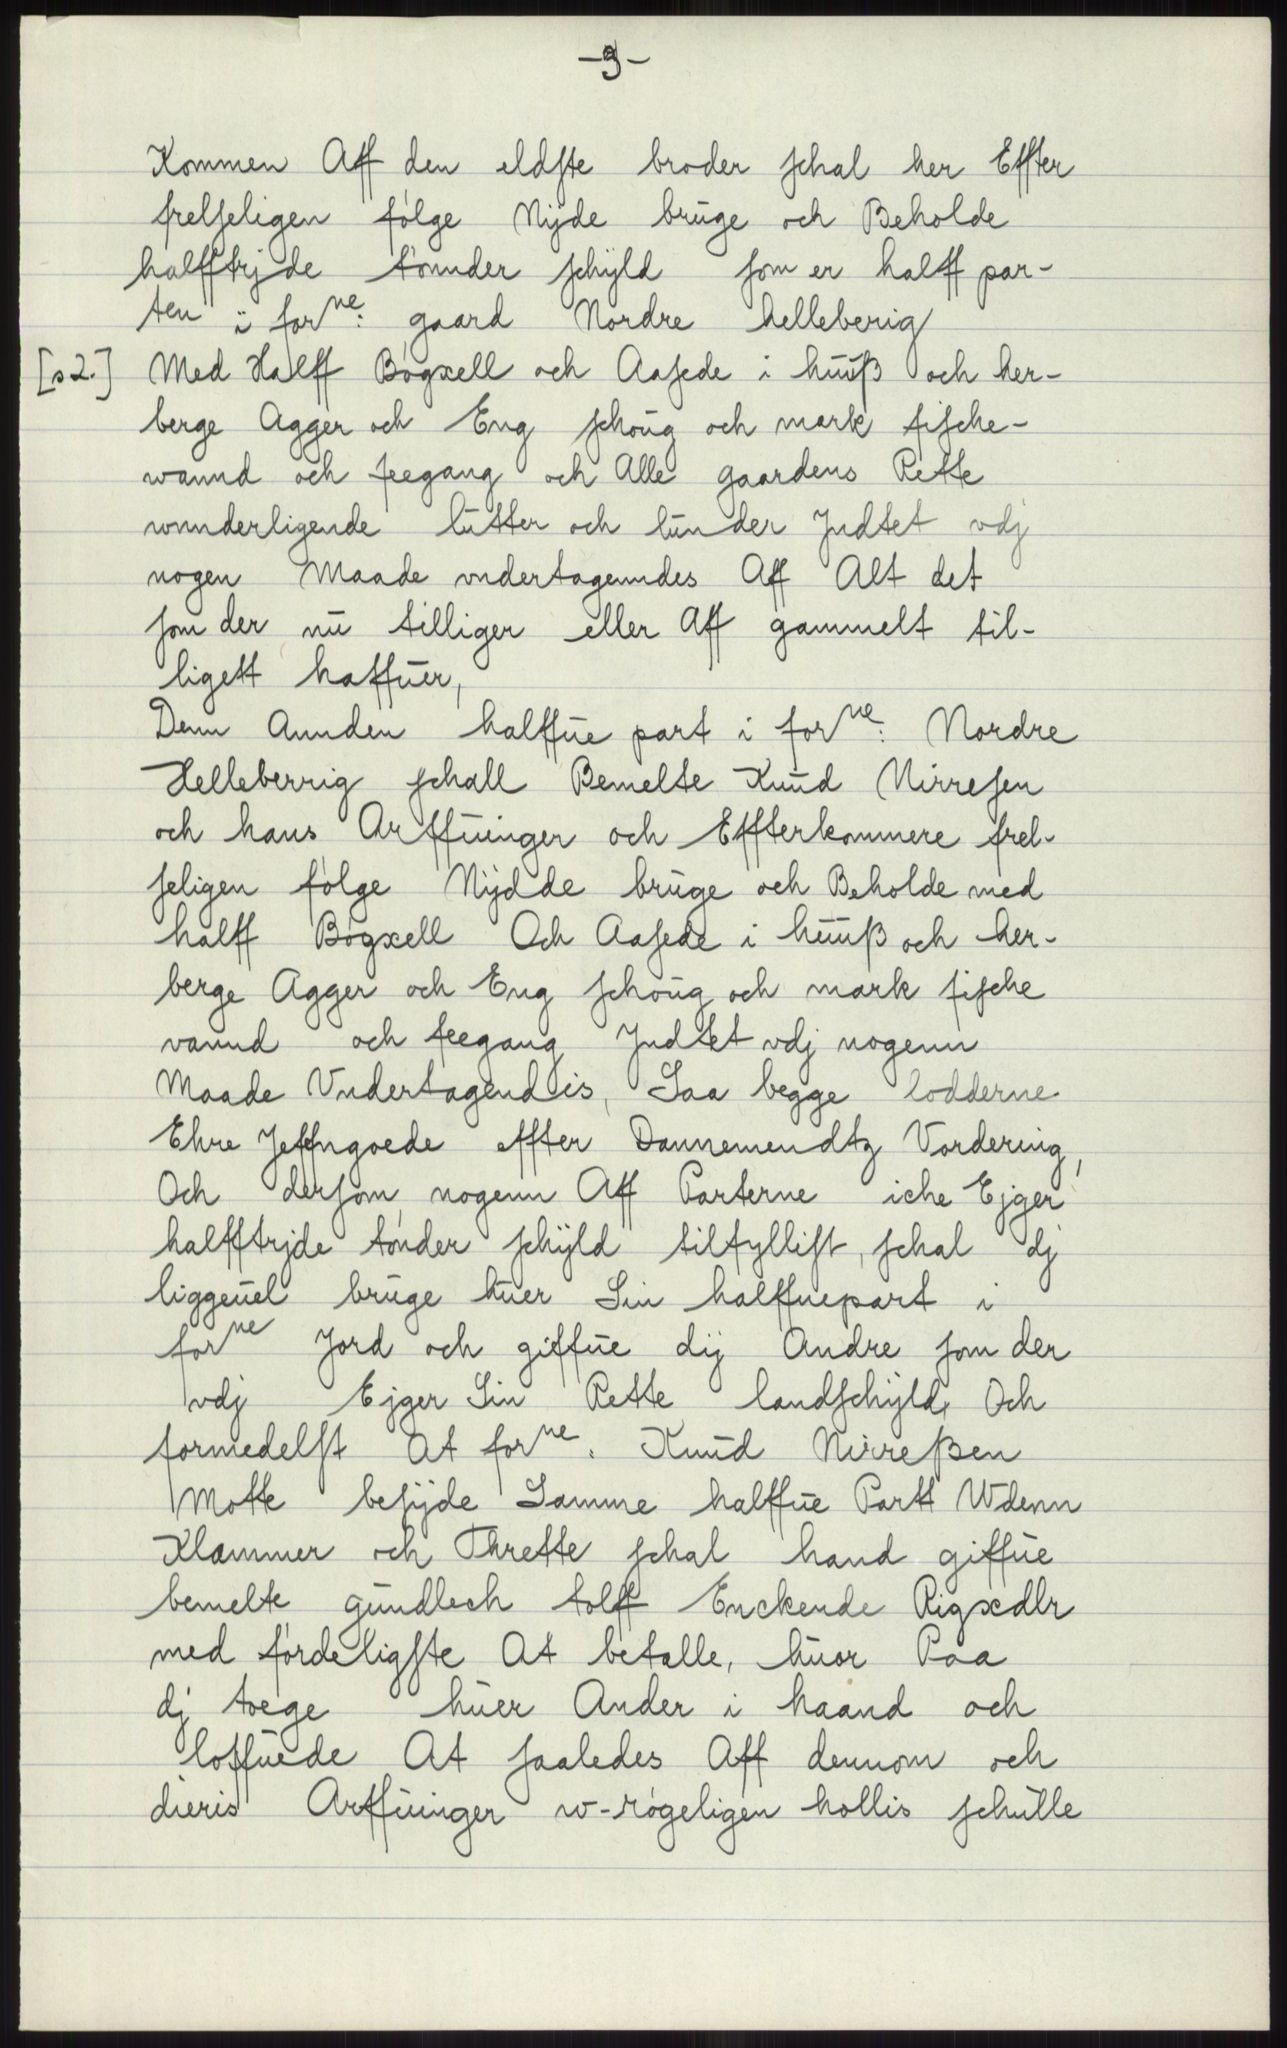 -3-
Kommen Aff den eldste broder schal her Effter
frelseligen følge Nijde brūge och Beholde
halfftrjde tønnder schÿld som er halff par-
ten i for ne: gaard Nordre helleberig
[s 2.] Med Halff Bøgxell och Aasede i hūūß och her-
berge Agger och Eng schoūg och mark fische-
wannd och feegang och Alle gaardens Rette
wnnderligende lūtter och lūnder Jndtet vdj
nogen Maade vndertagenndes Aff Alt det
som der nū tilliger eller Aff gammelt til-
ligett haffūer,
Denn Annden halffūe part i for ne: Nordre
Helleberrig schall Bemelte Knūd Nirresen
och hans Arffūinger och Effterkommere frel-
seligen følge Nijdde brūge och Beholde med
halff Bøgxell Och Aasede i hūūß och her-
berge Agger och Eng schoūg och mark fische
vannd och feegang Jndtet vdj nogenn
Maade Vndertagendis, Saa begge lodderne
Ehre Jeffngoede effter Dannemendtz Vordering,
Och dersom nogenn Aff Parterne iche Ejger
halfftrjde tønder schÿld tilfyllist, schal dj
liggeūel brūge hūer Sin halffuepart i
for ne Jord och giffūe dij Andre som der
vdj Ejger Sin Rette landschÿld, Och
formedelst At for ne: Knūd Nirreßen
Motte besijde Samme halffūe Partt Wdenn
Klammer och Thrette schal hand giffūe
bemelte gūndlech tolff Enckende Rigxdlr
med førdeligste At betalle, hūor Paa
dj toege hūer Ander i haand och
loffūede At saaledes Aff dennom och
dieris Arffūinger w-røgeligen hollis schūlle